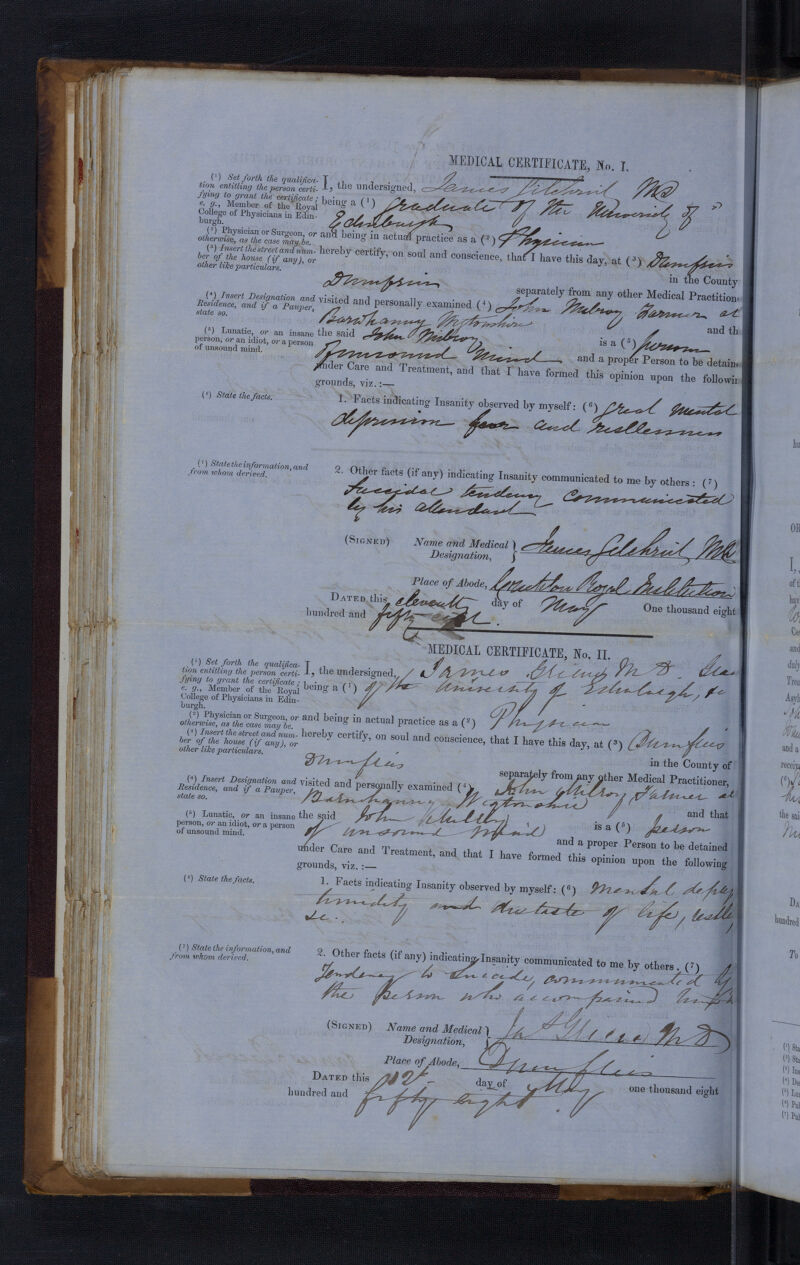 MEDICAL CERTIFICATE, No. I.
(¹) Set forth the qualifica-
tion entitling the person certi-
fying to grant the certificate;
e. g., Member of the Royal
College of Physicians in Edin-
burgh.
I, the undersigned, James Gilchrist MD
being a (¹) Graduate of the University of
Edinburgh
(²) Physician or Surgeon, or
otherwise, as the case may be.
and being in actual practice as a (²) Physician
(³) Insert the street and num-
ber of the house (if any), or
other like particulars.
hereby certify, on soul and conscience, that I have this day, at (³) Dumfries
Dumfries in the County
separately from any other Medical Practitione
(⁴) Insert Designation and
Residence, and if a Pauper,
state so.
visited and personally examined (⁴) John Milroy Farmer at
Barnhanny Wigtonshire and th
(⁵) Lunatic, or an insane
person, or an idiot, or a person
of unsound mind.
the said John Milroy is a (⁵) person
of unsound mind and a proper Person to be detain
under Care and Treatment, and that I have formed this opinion upon the followin
grounds, viz.:—
(⁶) State the facts.
1. Facts indicating Insanity observed by myself: (⁶) Great mental
depression fear and restlessness
(⁷) State the information, and
from whom derived.
2. Other facts (if any) indicating Insanity communicated to me by others: (⁷)
Suicidal tendency communicated
by his attendant
(SIGNED) Name and Medical } James Gilchrist MD
Designation, }
Place of Abode, Crichton Royal Institution
DATED this eleventh day of May One thousand eight
hundred and fifty eight.
MEDICAL CERTIFICATE, No. II.
(¹) Set forth the qualifica-
tion entitling the person certi-
fying to grant the certificate;
e. g., Member of the Royal
College of Physicians in Edin-
burgh.
I, the undersigned, James Grieve M D.
being a (¹) of the University of Edinburgh, &c
(²) Physician or Surgeon, or
otherwise, as the case may be.
and being in actual practice as a (²) Physician
(³) Insert the street and num-
ber of the house (if any), or
other like particulars.
hereby certify, on soul and conscience, that I have this day, at (³) Dumfries
Dumfries in the County of
separately from any other Medical Practitioner,
(⁴) Insert Designation and
Residence, and if a Pauper,
state so.
visited and personally examined (⁴) John Milroy Farmer at
Barnhanny Wigtonshire and that
(⁵) Lunatic, or an insane
person, or an idiot, or a person
of unsound mind.
the said John Milroy is a (⁵) person
of unsound mind and a proper Person to be detained
under Care and Treatment, and that I have formed this opinion upon the following
grounds, viz.:—
(⁶) State the facts.
1. Facts indicating Insanity observed by myself: (⁶) Mental
timidity and distaste of life,
&c.
(⁷) State the information, and
from whom derived.
2. Other facts (if any) indicating Insanity communicated to me by others. (⁷)
Tendency to Suicide, communicated by
the person who accompanied
(SIGNED) Name and Medical } Jas Grieve M D
Designation, }
Place of Abode, Dumfries
DATED this 12 day of May one thousand eight
hundred and fifty eight